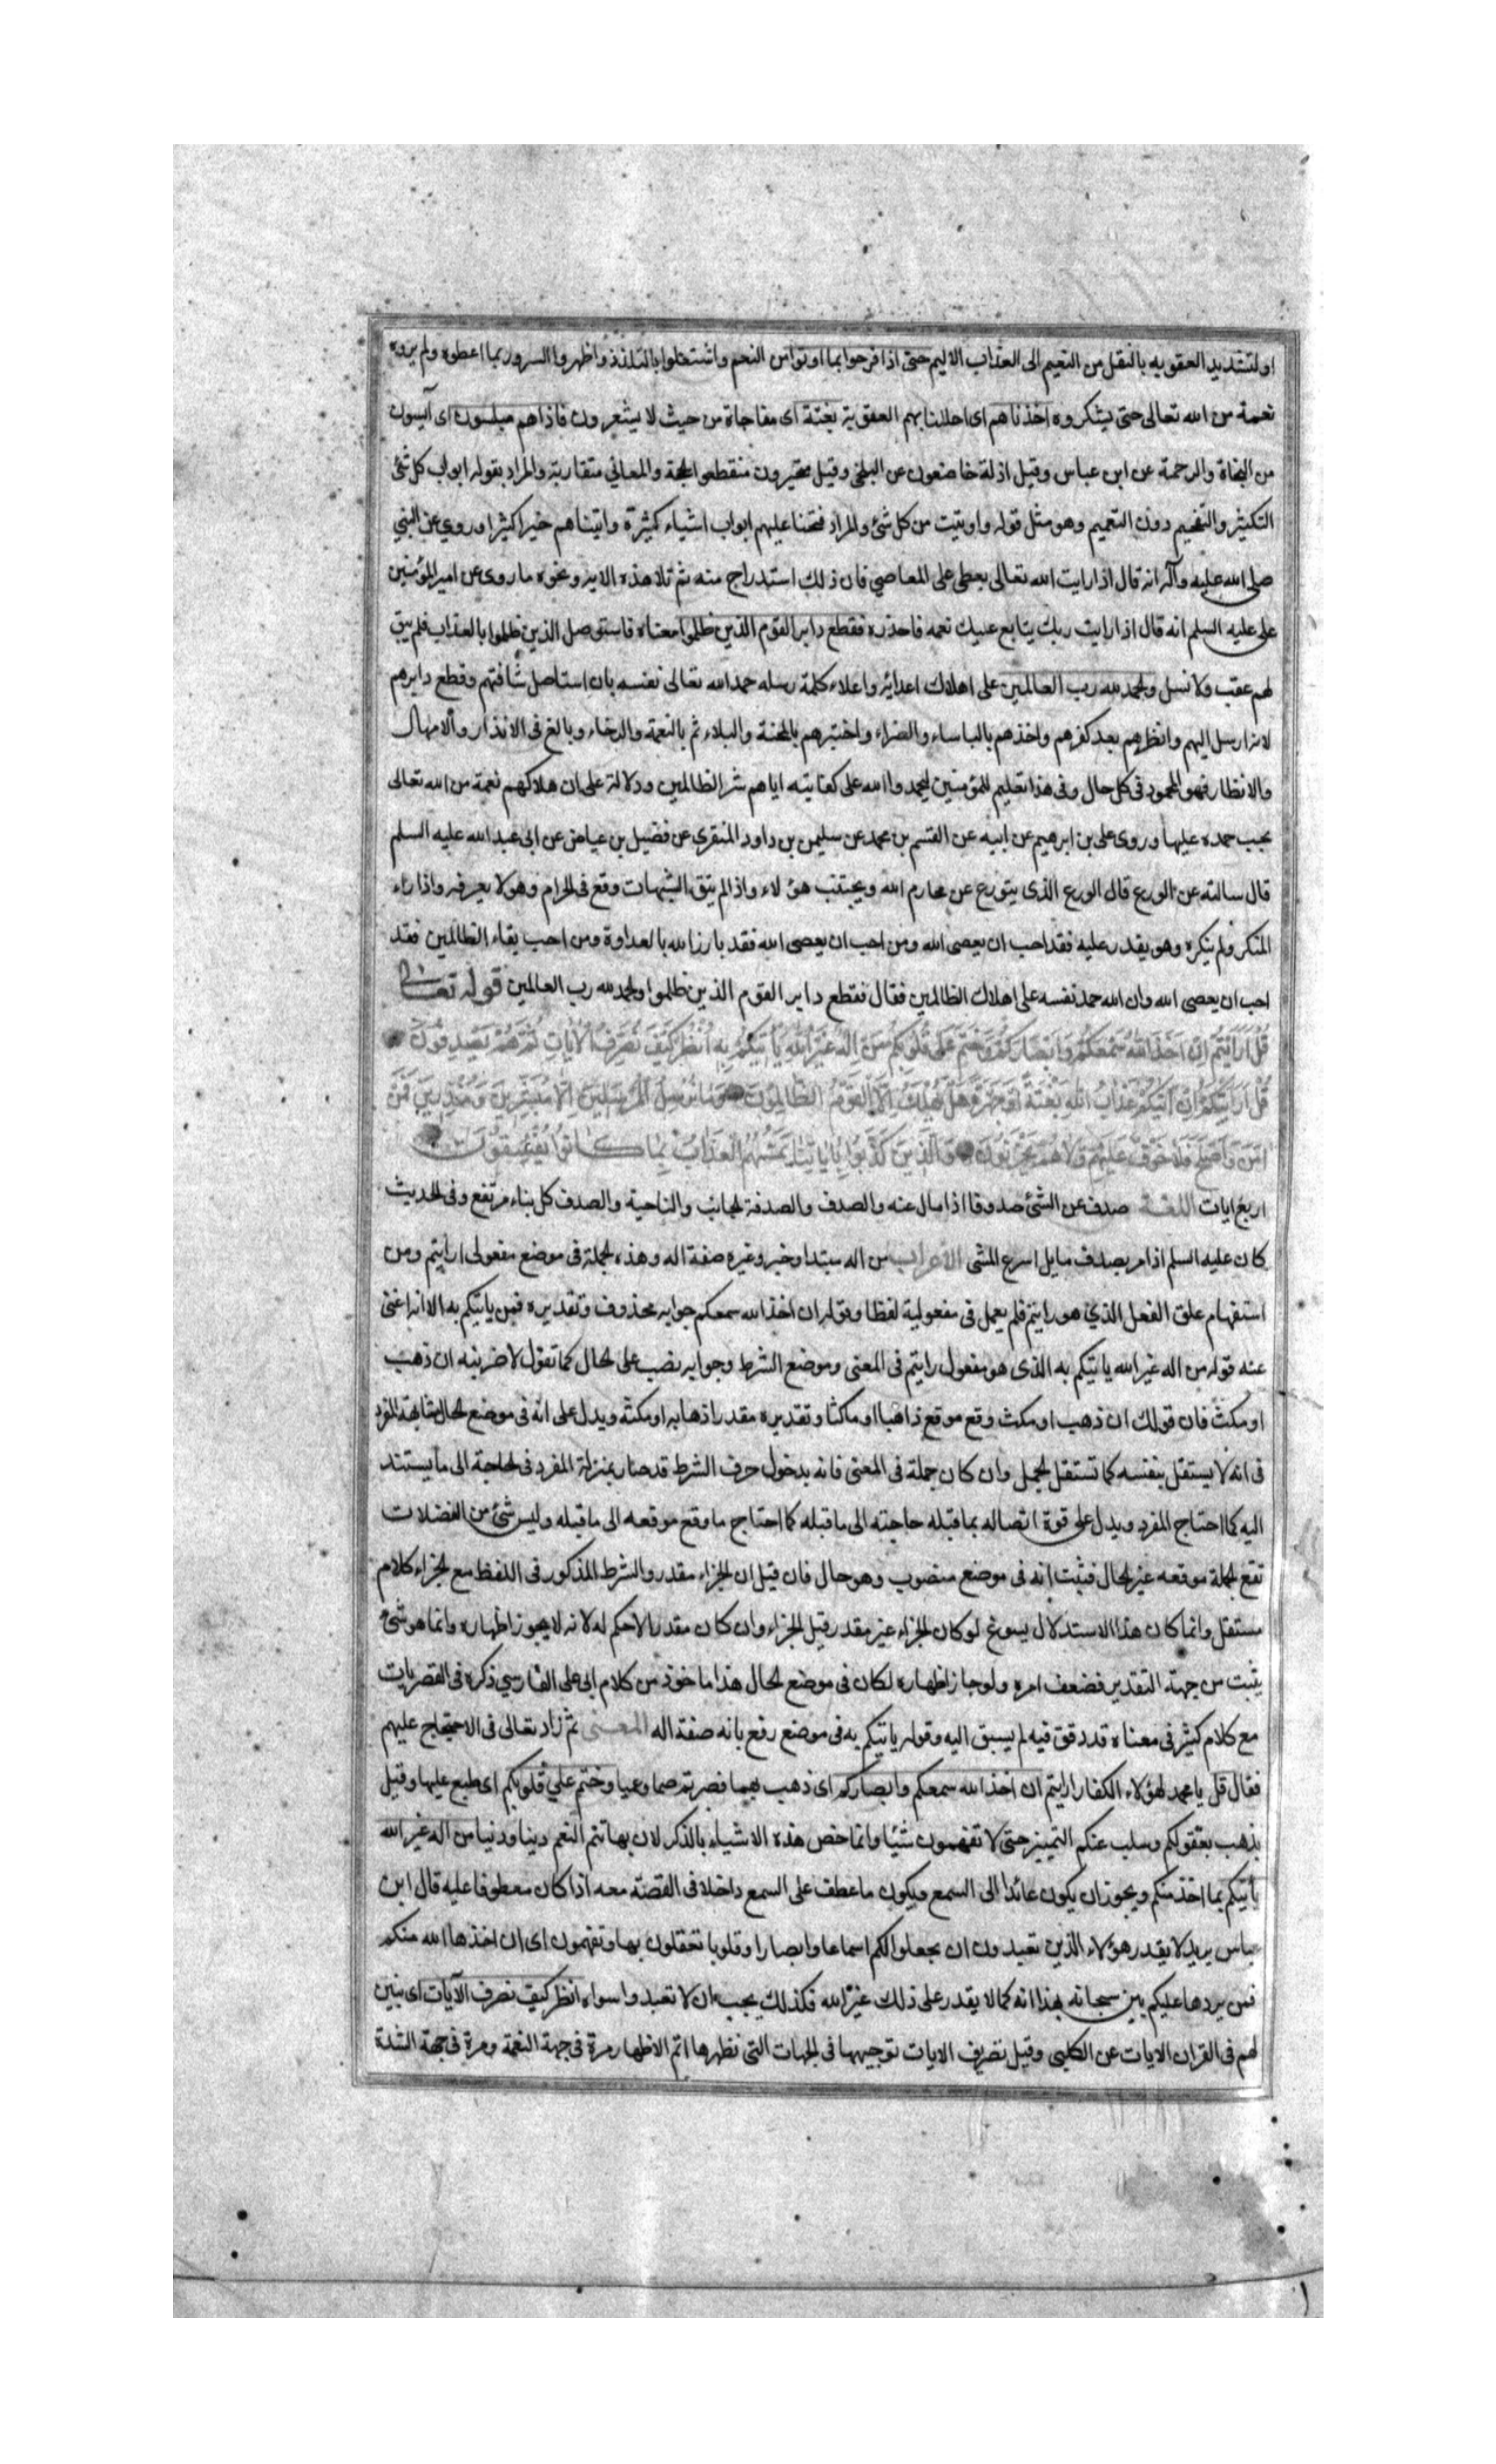 او لتشديد العقوبه بالنقل من النعيم الى العذاب الاليم حتى اذا فرحوا بما اوتوا من النعم واشتغلوا بالتلذذ واظهروا السرور بما اعطوه ولم يروه
نعمة من الله تعالى حتى يشكروه اخذناهم اى احللنا بهم العقوبة بغتة اى مفاجاة من حيث لا يشعرون فاذا هم مبلسون اى آيسون
من النجاة والرحمة عن ابن عباس وقيل اذلة خاضعون عن البلخي وقيل متحيرون منقطعوا الحجة والمعاني متقاربة والمراد بقوله ابواب كل شئ
التكثير والتفخيم دون التعميم وهو مثل قوله واوتيت من كل شئ والمراد فتحنا عليهم ابواب اشياء كثيرة واتيناهم خيرا كثيرا وروي عن النبي
صلى الله عليه وآله انه قال اذا رايت الله تعالى يعطى على المعاصي فان ذلك استدراج منه ثم تلا هذه الاية ونحوه ما روى عن امير المؤمنين
على عليه السلم انه قال اذا رايت ربك يتابع عليك نعمه فاحذره فقطع دابر القوم الذين ظلموا معناه فاستوصل الذين ظلموا بالعذاب فلم يبق
لهم عقب ولا نسل والحمد لله رب العالمين على اهلاك اعدائه واعلاء كلمة رسله حمد الله تعالى نفسه بان استاصل شافتهم وقطع دابرهم
لانه ارسل اليهم وانظرهم بعد كفرهم واخذهم بالباساء والضراء واختبرهم بالمحنة والبلاء ثم بالنعمة والرخاء وبالغ فى الانذار والامهال
والانظار فهو المحمود فى كل حال وفى هذا تعليم للمؤمنين ليحمدوا الله على كفايته اياهم شر الظالمين ودلالة على ان هلاكهم نعمة من الله تعالى
يجب حمده عليها وروى على بن ابرهيم عن ابيه عن القسم بن محمد عن سليمن بن داود المنقري عن فضيل بن عياض عن ابى عبد الله عليه السلم
قال سالته عن الورع قال الورع الذى يتورع عن محارم الله ويجتنب هؤلاء واذا لم يتق الشبهات وقع فى الحرام وهو لا يعرفه واذا راء
المنكر ولم ينكره وهو يقدر عليه فقد احب ان يعصى الله ومن احب ان يعصى الله فقد بارز الله بالعداوة ومن احب بقاء الظالمين فقد
احب ان يعصى الله وان الله حمد نفسه على اهلاك الظالمين فقال فقطع دابر القوم الذين ظلموا والحمد لله رب العالمين قوله تعالى
قُلْ اَرَاَيْتُمْ اِنْ اَخَذَ اللهُ سَمْعَكُمْ وَاَبْصَارَكُمْ وَخَتَمَ عَلَى قُلُوبِكُمْ مَنْ اِلَهٌ غَيْرُ اللهِ يَاْتِيكُمْ بِهِ اُنْظُرْ كَيْفَ نُصَرِّفُ الْاَيَاتِ ثُمَّ هُمْ يَصْدِفُونَ
قُلْ اَرَاَيْتَكُمْ اِنْ اَتَيكُمْ عَذَابُ اللهِ بَغْتَةً اَوْ جَهْرَةً هَلْ يُهْلَكُ اِلَّا الْقَوْمُ الظَّالِمُونَ وَمَا نُرْسِلُ الْمُرْسَلِينَ اِلَّا مُبَشِّرِينَ وَمُنْذِرِينَ فَمَنْ
اٰمَنَ وَاَصْلَحَ فَلَا خَوْفٌ عَلَيْهِمْ وَلَا هُمْ يَحْزَنُونَ وَالَّذِينَ كَذَّبُوا بِاٰيَاتِنَا يَمَسُّهُمُ الْعَذَابُ بِمَا كَانُوا يَفْسُقُونَ
اربع ايات اللغة صدف عن الشئ صدوفا اذا مال عنه والصدف والصدفة الجانب والناحية والصدف كل بناء مرتفع وفى الحديث
كان عليه السلم اذا مر بصدف مايل اسرع المشى الاعراب من اله مبتدا وخبر وغيره صفة اله وهذه الجملة فى موضع مفعولى ارايتم ومن
استفهام علق الفعل الذي هو رايتم فلم يعمل فى مفعولية لفظا وقوله ان اخذ الله سمعكم جوابه محذوف وتقديره فمن ياتيكم به الا انه اغنى
عنه قوله من اله غير الله ياتيكم به الذى هو مفعول رايتم فى المعنى وموضع الشرط وجوابه نصب على الحال كما تقول لاضربنه ان ذهب
او مكث فان قولك ان ذهب او مكث وقع موقع ذاهبا او ماكثا وتقديره مقدرا ذهابه او مكثه ويدل على انه فى موضع الحال مشابهة المفرد
فى انه لا يستقل بنفسه كما تستقل الجمل وان كان جملة فى المعنى فانه بدخول حرف الشرط قد صار بمنزلة المفرد فى الحاجة الى ما يستند
اليه كما احتاج المفرد ويدل على قوة اتصاله بما قبله حاجته الى ما قبله كما احتاج ما وقع موقعه الى ما قبله وليس شئ من الفضلات
تقع الجملة موقعه غير الحال فثبت انه فى موضع منصوب وهو حال فان قيل ان الجزاء مقدر والشرط المذكور فى اللفظ مع الجزاء كلام
مستقل وانما كان هذا الاستدلال يسوغ لو كان الجزاء غير مقدر قيل الجزاء وان كان مقدرا لاحكم له لانه لا يجوز اظهاره وانما هو شئ
يثبت من جهة التقدير فضعف امره ولو جاز اظهاره لكان فى موضع الحال هذا ماخوذ من كلام ابى على الفارسي ذكره فى القصريات
مع كلام كثير فى معناه قد دقق فيه لم يسبق اليه وقوله ياتيكم به فى موضع رفع بانه صفة اله المعنى ثم زاد تعالى فى الاحتجاج عليهم
فقال قل يا محمد لهؤلاء الكفار ارايتم ان اخذ الله سمعكم وابصاركم اى ذهب بهما فصرتم صما وعميا وختم علي قلوبكم اى طبع عليها وقيل
يذهب بعقولكم وسلب عنكم التمييز حتى لا تفهمون شيئا وانما خص هذه الاشياء بالذكر لان بها تتم النعم دينا ودنيا من اله غير الله
يأتيكم بما اخذ منكم ويجوز ان يكون عائدا الى السمع ويكون ما عطف على السمع داخلا فى القصة معه اذا كان معطوفا عليه قال ابن
عباس يريد لا يقدر هؤلاء الذين تعبدون ان يجعلوا لكم اسماعا وابصارا وقلوبا تعقلون بها وتفهمون اى ان اخذها الله منكم
فمن يردها عليكم بين سبحانه بهذا انه كما لا يقدر على ذلك غير الله فكذلك يجب ان لا تعبدوا سواه انظر كيف نصرف الآيات اى نبين
لهم فى القران الايات عن الكلبى وقيل تصريف الايات توجيهها فى الجهات التى نظهرها اتم الاظهار مرة فى جهة النعمة ومرة فى جهة الشدة